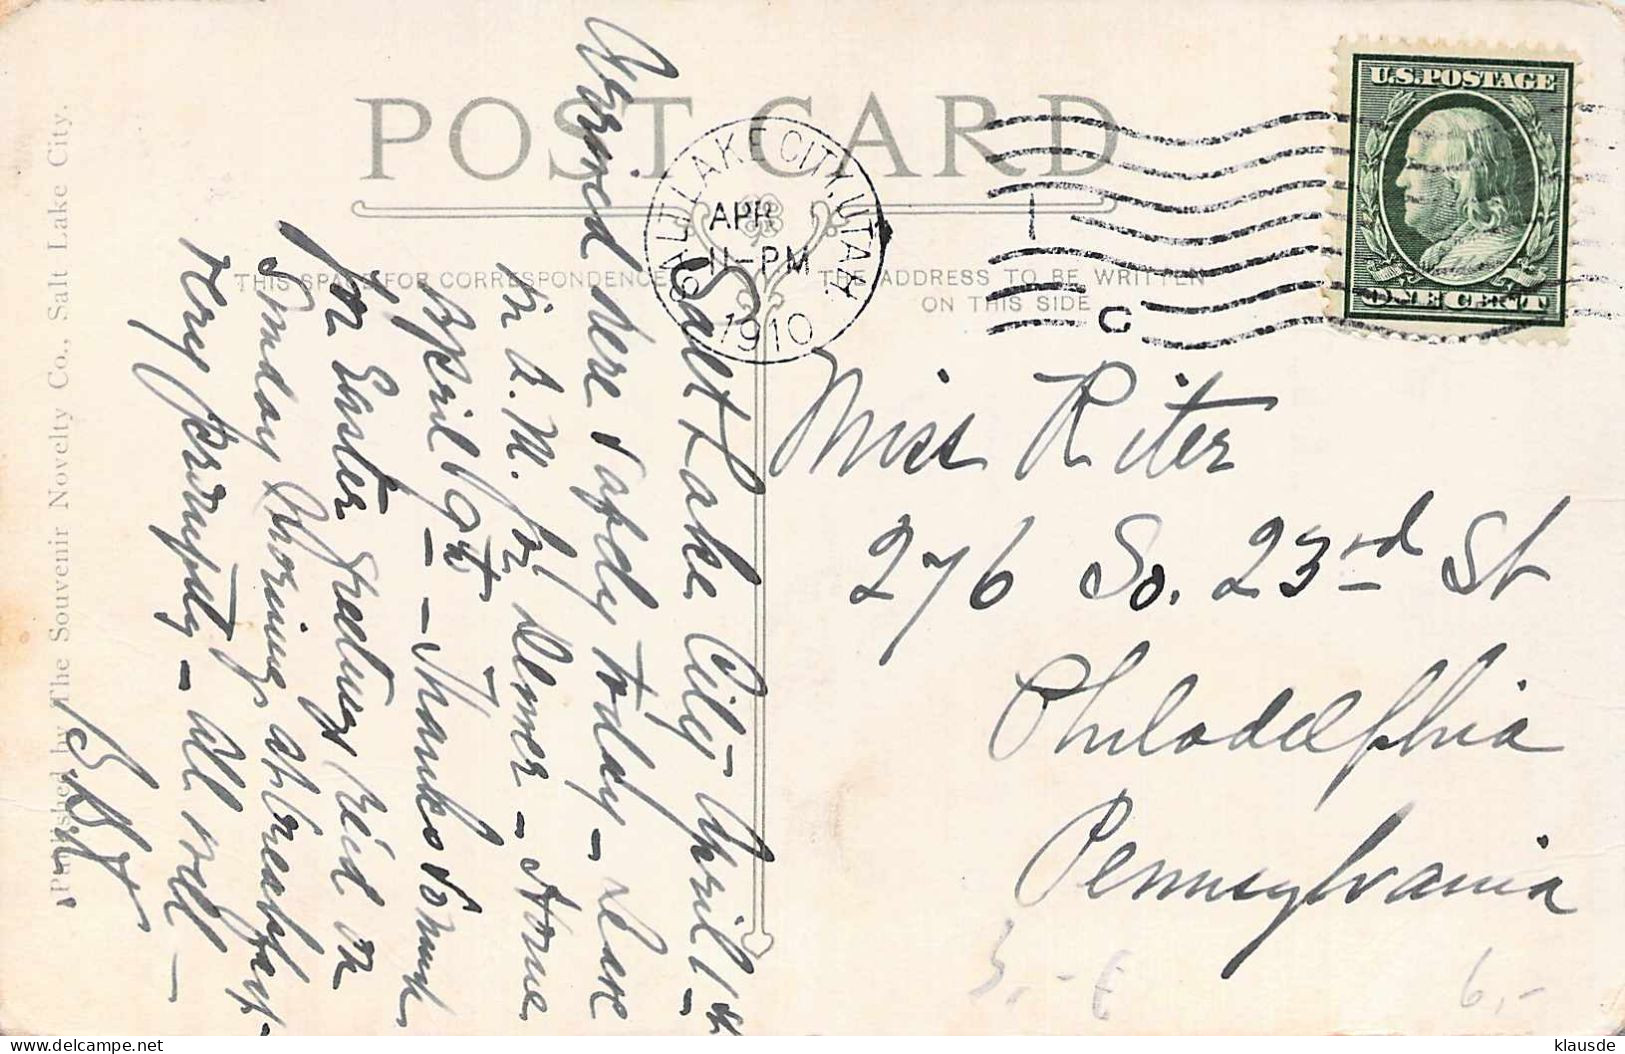 POST CARD
SALT LAKE CITY, UTAH
APR 1
11-PM
1910
U.S. POSTAGE
ONE CENT
THIS SPACE FOR CORRESPONDENCE
THE ADDRESS TO BE WRITTEN
ON THIS SIDE
C
Salt Lake City April 1st
Arrived here safely today - Leave
in A.M. for Denver - Home
April 9th - Thanks so much
for Easter greetings Rec'd on
Sunday Morning at breakfast
very promptly - All well -
Miss Riter
276 So. 23rd St
Philadelphia
Pennsylvania
Published by The Souvenir Novelty Co., Salt Lake City.
6,-
klausde
delcampe.net